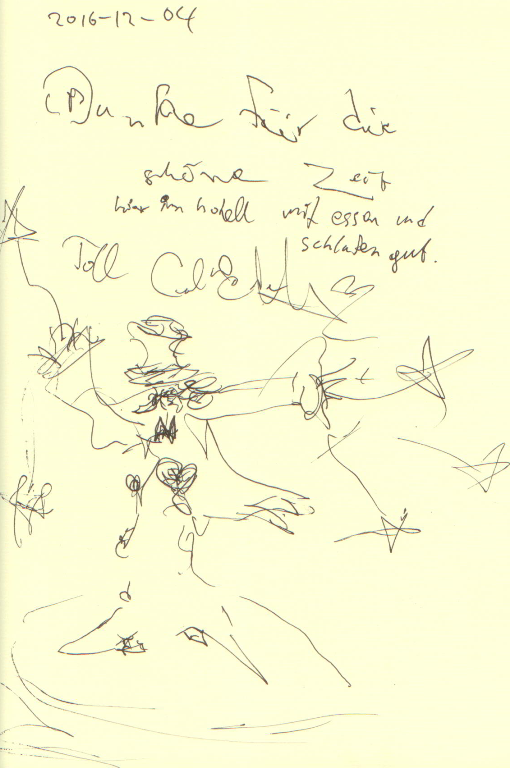 2016-12-04
Danke für die
schöne Zeit
hier im hotell mit essen und
schlafen gut.
Toll